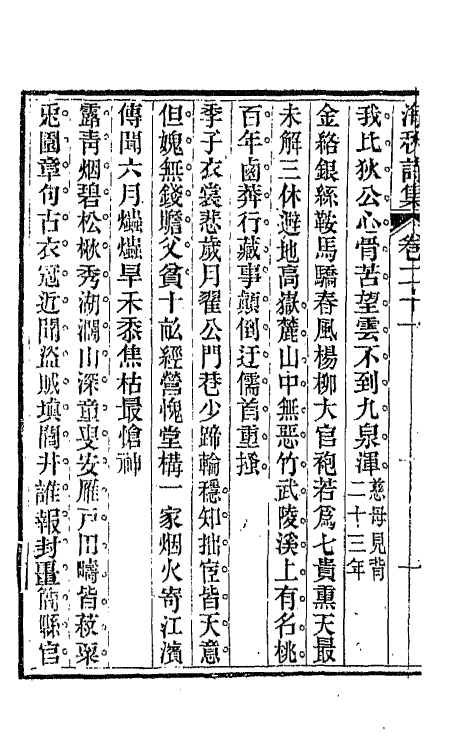 海秋詩集 卷二十一
我比狄公心骨苦。望雲不到九泉渾。慈母見背二十三年
金絡銀絲鞍馬驕。春風楊柳大官袍。若爲七貴熏天最
未解三休避地高。嶽麓山中無惡竹。武陵溪上有名桃。
百年鹵莽行藏事。顛倒迂儒首重搔。
季子衣裳悲歲月。翟公門巷少蹄輪。穩知拙宦皆天意。
但媿無錢贍父貧。十畝經營愧堂構。一家烟火寄江濱
傳聞六月爞爞旱。禾黍焦枯最愴神
露靑烟碧松楸秀。湖濶山深童叟安。雁戶田疇皆菽粟。
兎園章句古衣冠。近聞盜賊塡閭井。誰報封畺簡縣官